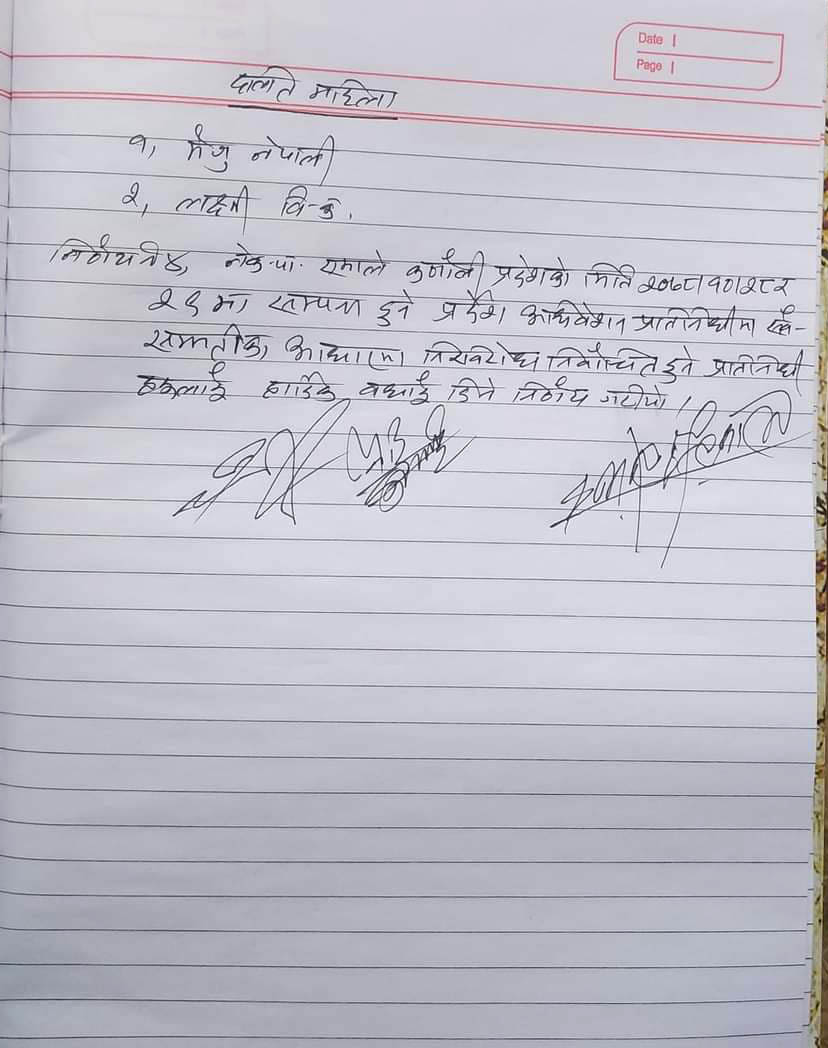 Date
Page
दालति माहिला
१, मैयु नेपाली
२, लक्ष्मी वि-क.
निर्णय नं ४, नेक.पा. एमाले कर्णाली प्रदेशको मिति २०७८।१०।२८ र
२९ मा सम्पन्न हुने प्रदेश अधिवेशन प्रतिनिधीमा सर्व-
सम्मतीक आधारमा निरविरोध निर्वाचित हुने प्रतिनिधी
हरुलाई हार्दिक वधाई दिने निर्णय गरीयो।